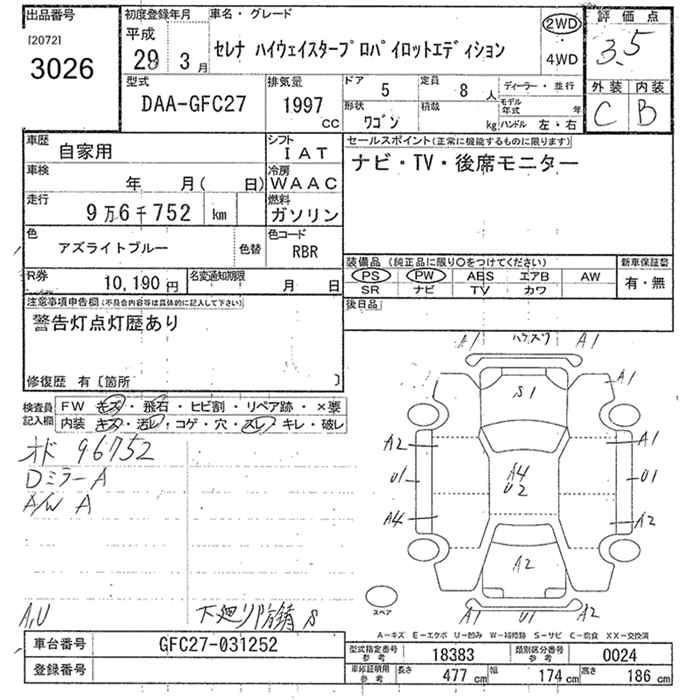 出品番号
[2072]
3026
初度登録年月
平成
29 3月
車名・グレード
セレナ ハイウェイスタープロパイロットエディション
2WD
4WD
評価点
3.5
外装 内装
C B
型式
DAA-GFC27
排気量
1997 CC
ドア 5
定員 8人
形状 ワゴン
積載 kg
ディーラー・並行
モデル年式 年
ハンドル 左・右
車歴
自家用
シフト
IAT
車検 年 月( 日)
冷房
WAAC
走行
9万6千752 km
燃料
ガソリン
色
アズライトブルー
色替
色コード
RBR
R券 10,190円
名変通知期限 月 日
セールスポイント(正常に機能するものに限ります)
ナビ・TV・後席モニター
装備品(純正品に限り○をつけてください)
PS PW ABS エアB AW
SR ナビ TV カワ
新車保証書
有・無
後日品
注意事項申告欄(不具合内容等は具体的に記入して下さい)
警告灯点灯歴あり
修復歴 有〔箇所 〕
検査員記入欄
FW キズ・飛石・ヒビ割・リペア跡・×要
内装 キズ・汚レ・コゲ・穴・スレ・キレ・破レ
オド 96752
Dミラー A
A/W A
A,U
下廻り防錆 S
A1 ハケズク A1
S1
A1
A2 A1
U1 A4 U2 U1
A4 A2
A2
スペア
A1 U1 A2
A-キズ E-エクボ U-凹み W-補修跡 S-サビ C-腐食 XX-交換済
車台番号 GFC27-031252
登録番号
型式指定番号 参考 18383
類別区分番号 参考 0024
車庫証明用 参考
長さ 477 cm
幅 174 cm
高さ 186 cm